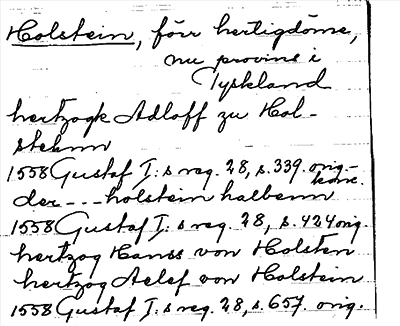 Holstein, förr hertigdöme,
nu provins i
Tyskland
hertzogk Adloff zu Hol-
steinn
1558 Gustaf I:s reg. 28, s. 339. orig.-
konc.
der --- holstein halbenn
1558 Gustaf I:s reg. 28, s. 424 orig.
hertzog Hanss von Holsten
hertzog Aelef von Holstein
1558 Gustaf I:s reg. 28, s. 657. orig.